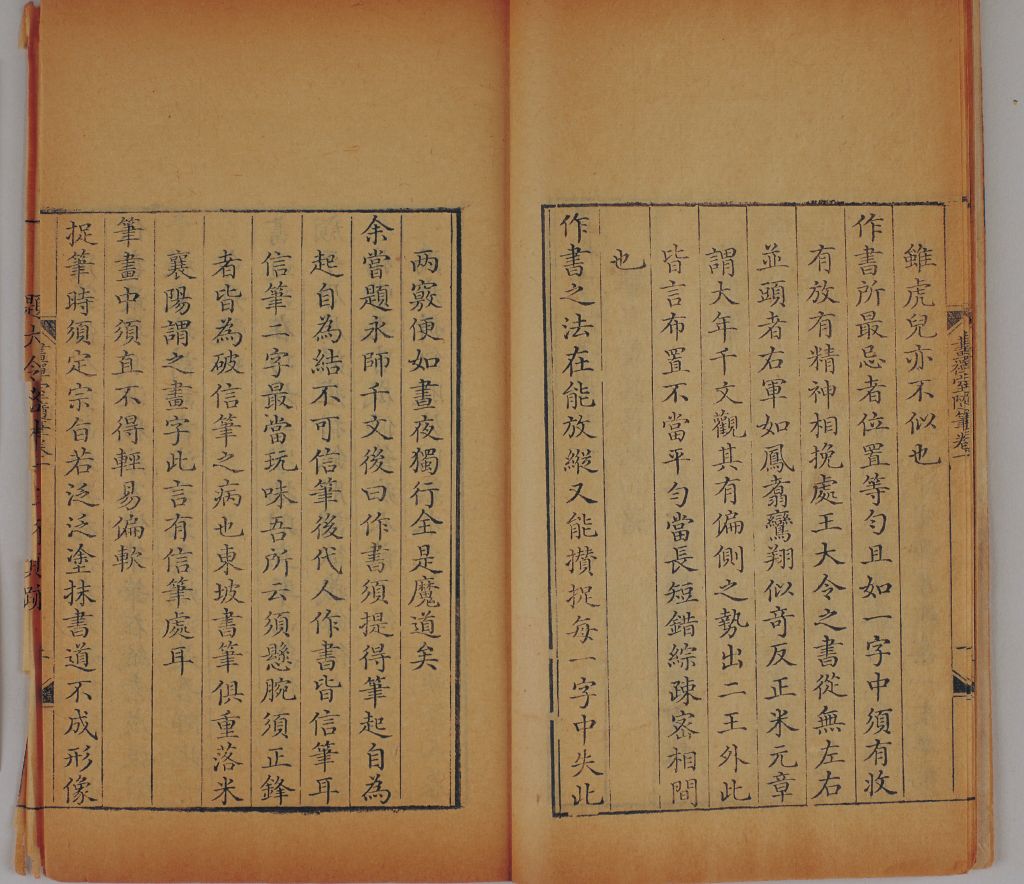 畫禪室隨筆卷一
一
雖虎兒亦不似也
作書所最忌者位置等勻且如一字中須有收
有放有精神相挽處王大令之書從無左右
並頭者右軍如鳳翥鸞翔似竒反正米元章
謂大年千文觀其有偏側之勢出二王外此
皆言布置不當平勻當長短錯綜疎宻相間
也
作書之法在能放縱又能攢捉每一字中失此
两竅便如晝夜獨行全是魔道矣
余嘗題永師千文後曰作書須提得筆起自為
起自為結不可信筆後代人作書皆信筆耳
信筆二字最當玩味吾所云須懸腕須正鋒
者皆為破信筆之病也東坡書筆俱重落米
襄陽謂之畫字此言有信筆處耳
筆畫中須直不得輕易偏軟
捉筆時須定宗旨若泛泛塗抹書道不成形像